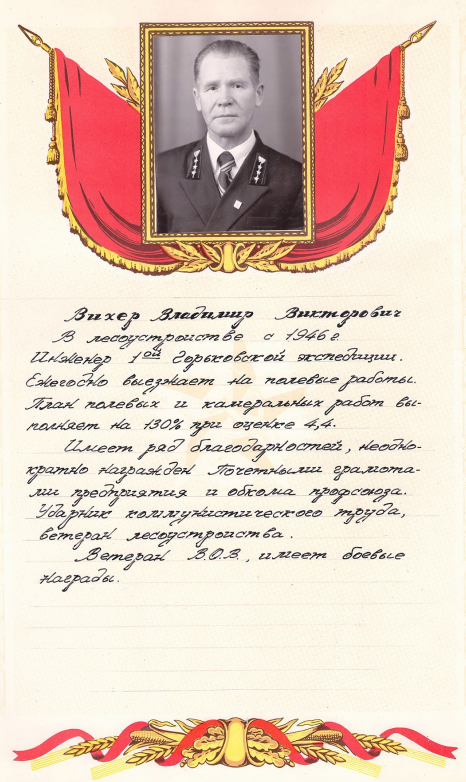 Вихер Владимир Викторович
В лесоустройстве с 1946 г.
Инженер 1ой Горьковской экспедиции.
Ежегодно выезжает на полевые работы.
План полевых и камеральных работ вы-
полняет на 130% при оценке 4,4.
Имеет ряд благодарностей, неодно-
кратно награжден Почетными грамота-
ми предприятия и обкома профсоюза.
Ударник коммунистического труда,
ветеран лесоустройства.
Ветеран В.О.В., имеет боевые
награды.